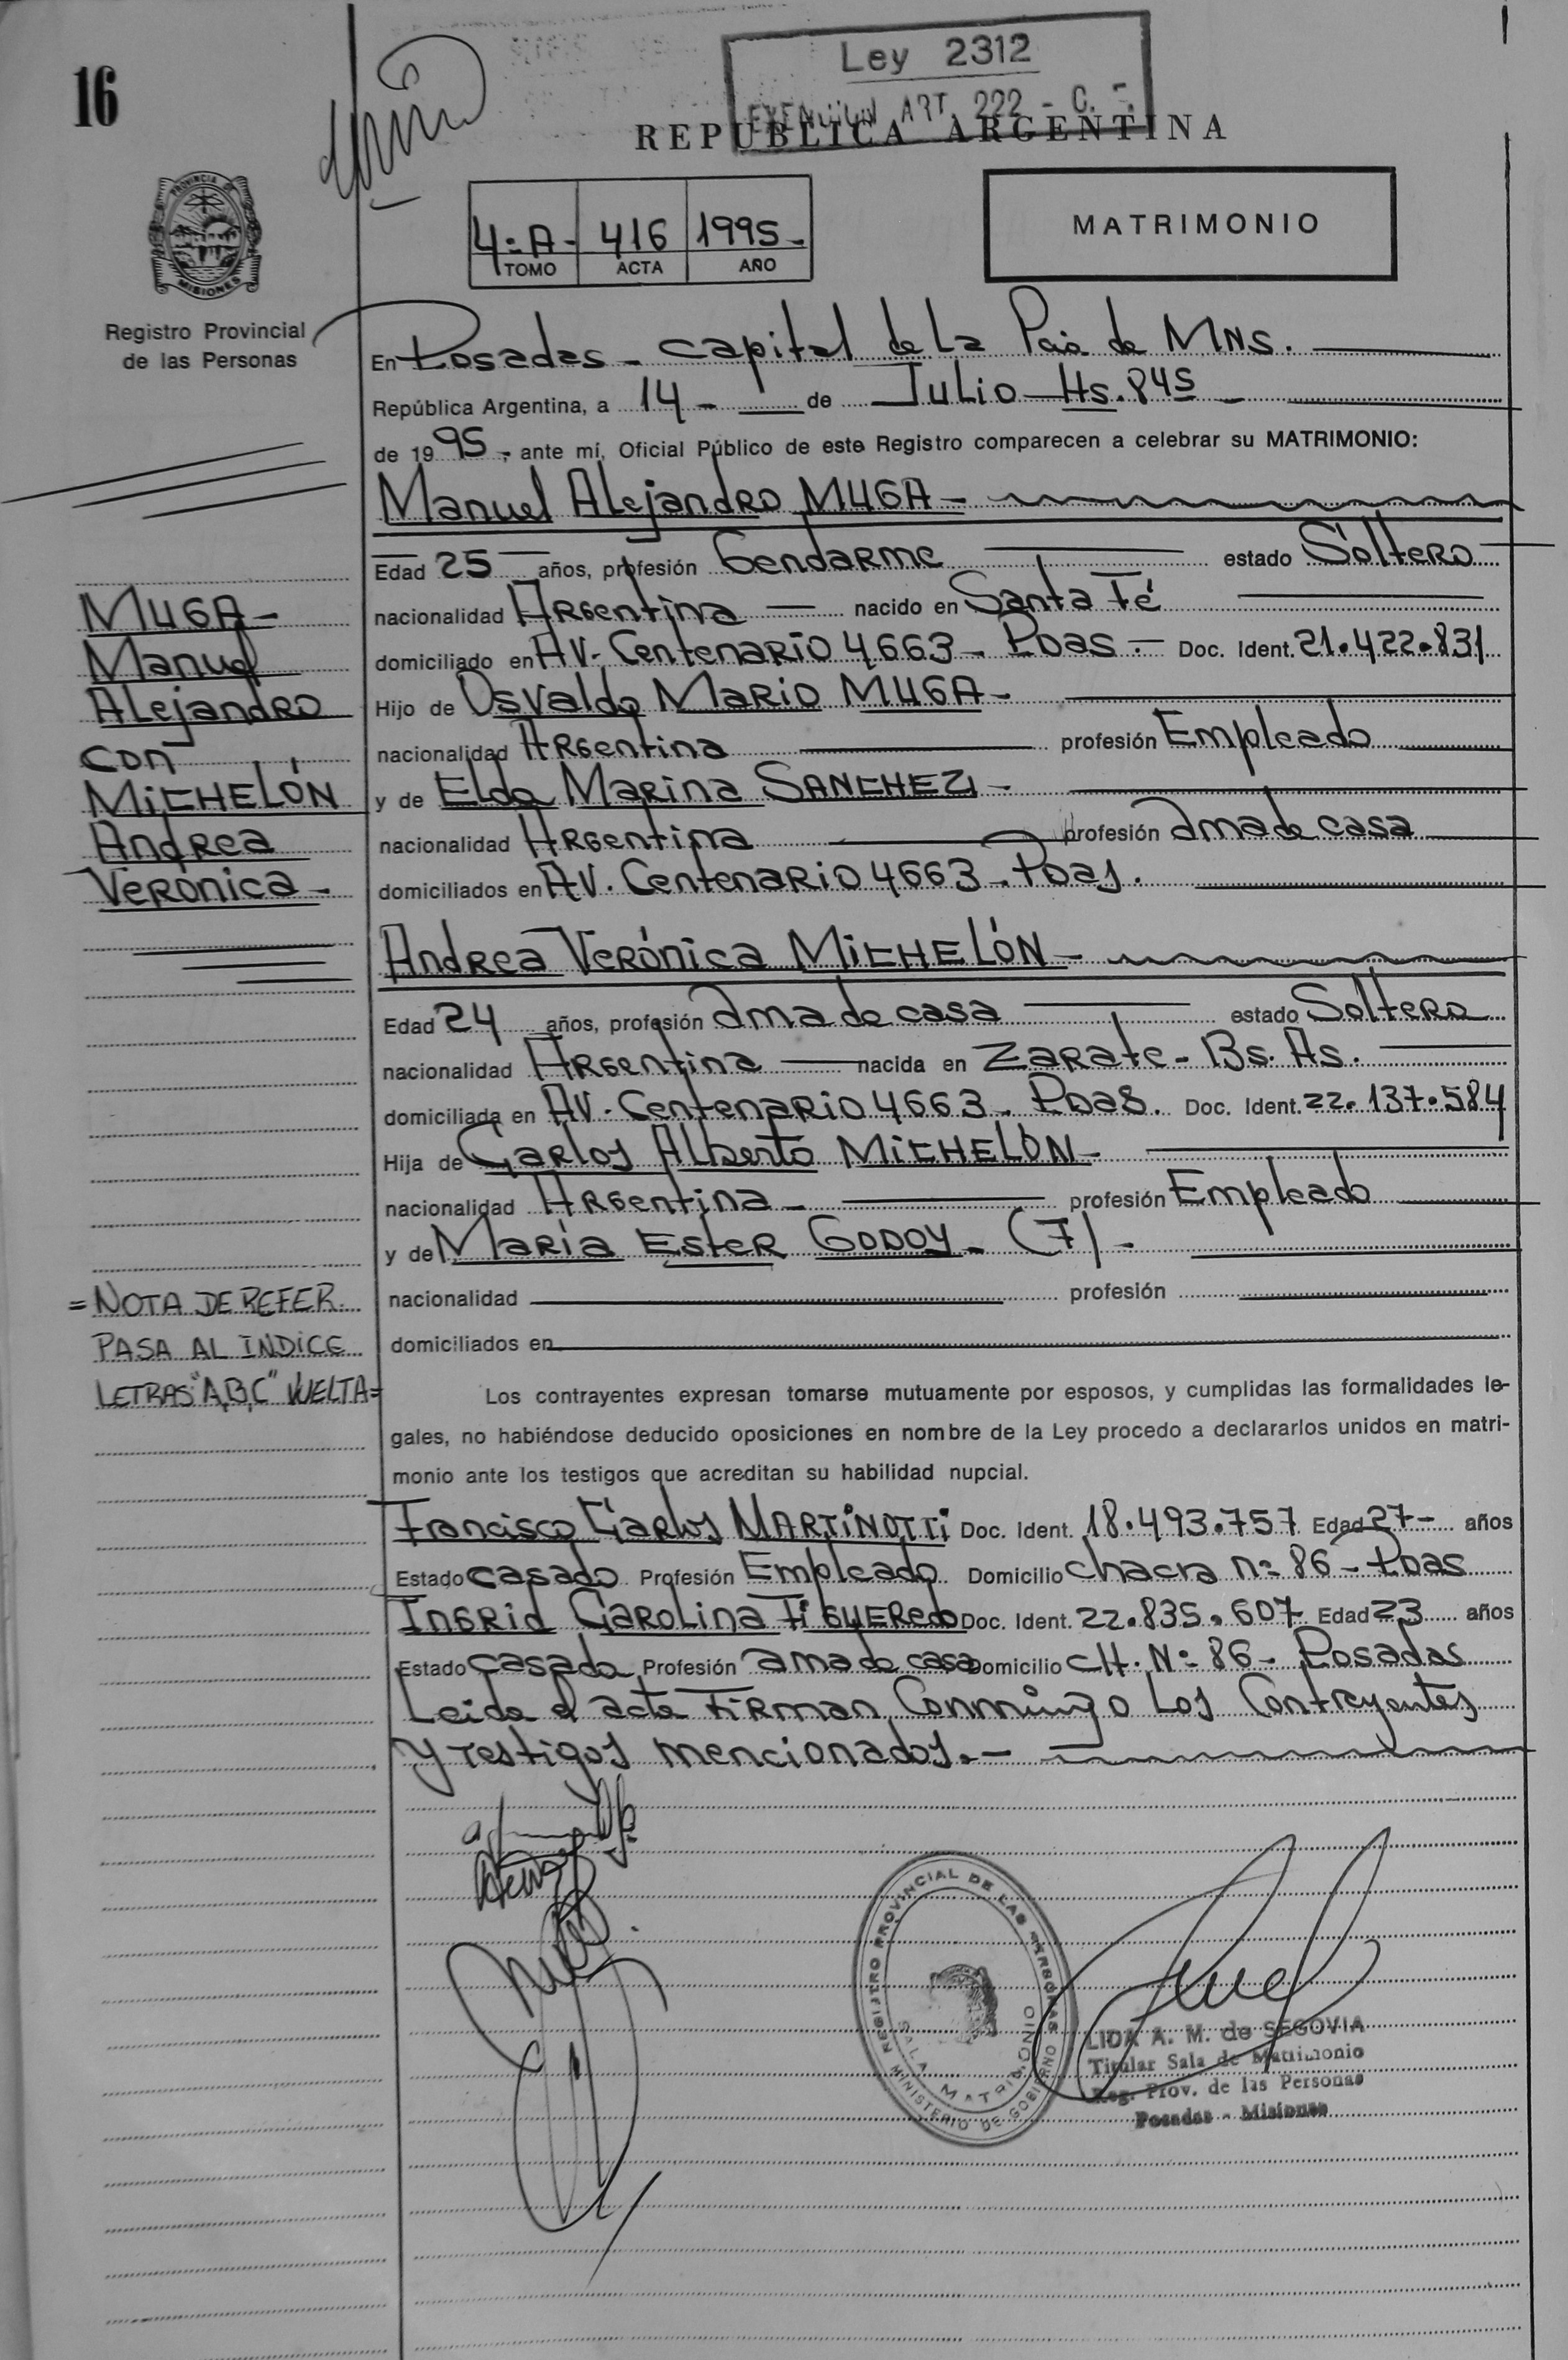 16
Ley 2312
EXENCION ART. 222 - C. F.
REPUBLICA ARGENTINA
PROVINCIA DE
MISIONES
Registro Provincial
de las Personas
4-A- 416 1995-
TOMO ACTA AÑO
MATRIMONIO
En Posadas - capital de La Pcia de MNS.
República Argentina, a 14- de Julio Hs. 845 -
de 1995-, ante mí, Oficial Público de este Registro comparecen a celebrar su MATRIMONIO:
Manuel Alejandro MUGA-
Edad 25 años, profesión Gendarme estado Soltero
nacionalidad Argentina nacido en Santa Fé
domiciliado en AV. Centenario 4663- Pdas. - Doc. Ident. 21.422.831
Hijo de Osvaldo Mario MUGA-
nacionalidad Argentina profesión Empleado
y de Elda Marina SANCHEZ -
nacionalidad Argentina profesión ama de casa
domiciliados en AV. Centenario 4663- Pdas.
MUGA-
Manuel
Alejandro
con
MICHELÓN
Andrea
Veronica-
Andrea Verónica MICHELÓN-
Edad 24 años, profesión ama de casa estado Soltera
nacionalidad Argentina nacida en Zarate- Bs. As.
domiciliada en AV. Centenario 4663- Pdas. Doc. Ident. 22.137.584
Hija de Carlos Alberto MICHELÓN-
nacionalidad Argentina - profesión Empleado
y de María Ester GODOY- (7) -
nacionalidad profesión
domiciliados en
=NOTA DE REFER.
PASA AL INDICE
LETRAS "A,B,C" VUELTA=
Los contrayentes expresan tomarse mutuamente por esposos, y cumplidas las formalidades le-
gales, no habiéndose deducido oposiciones en nombre de la Ley procedo a declararlos unidos en matri-
monio ante los testigos que acreditan su habilidad nupcial.
Francisco Carlos MARTINOTTI Doc. Ident. 18.493.757 Edad 27- años
Estado casado Profesión Empleado Domicilio chacra nº 86- Pdas
Ingrid Carolina Figueredo Doc. Ident. 22.835.607 Edad 23 años
Estado casada Profesión ama de casa Domicilio CH. Nº 86- Posadas
Leida el acta Firman Conmigo Los Contrayentes
y testigos mencionados.-
REGISTRO PROVINCIAL DE LAS PERSONAS
SALA MATRIMONIO
MINISTERIO DE GOBIERNO
LIDA A. M. de SEGOVIA
Titular Sala de Matrimonio
Reg. Prov. de las Personas
Posadas - Misiones